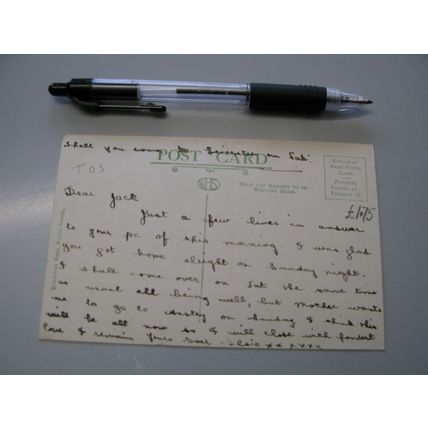 Shall you come to Leicester on Sat?
POST CARD
T.03
WHS
ONLY THE ADDRESS TO BE
WRITTEN HERE.
INLAND
FOREIGN 1d.
£1075
Dear Jack
Just a few lines in answer
to your pc of this morning. I was glad
you got home alright on Sunday night.
I shall come over on Sat the same time
as usual all being well, but Mother wants
me to go to Anstey on Sunday I think this
will be all now so I will close with fondest
love & remain yours ever Elsie xx x xxx